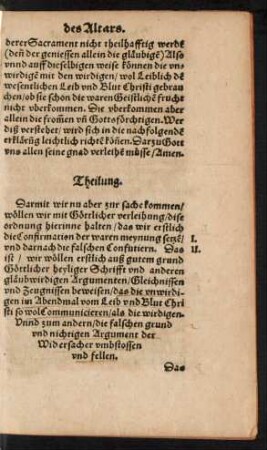 des Altars.
derer Sacrament nicht theilhafftig werdẽ
(deñ der geniessen allein die gläubigẽ) Also
vnnd auff dieselbigen weise können die vn⸗
wirdigẽ mit den wirdigen/ wol Leiblich dẽ
wesentlichen Leib vnd Blut Christi gebrau
chen/ ob sie schon die waren Geistlichẽ frucht
nicht vberkommen. Die vberkommen aber
allein die from̃en vñ Gottsförchtigen. Wer
diß verstehet/ wird sich in die nachfolgendẽ
erklärũg leichtlich richtẽ könẽn. Darzu Gott
vns allen seine gnad verleihẽ müsse/ Amen.
Theilung.
Darmit wir nu aber zur sache kommen/
wöllen wir mit Göttlicher verleihung/ dise
ordnung hierinne halten/ das wir erstlich
die Confirmation der waren meynung setzẽ/ I.
vnd darnach die falschen Confutiern. Das II.
ist/ wir wöllen erstlich auß gutem grund
Göttlicher heyliger Schrifft vnd anderen
gläubwirdigen Argumenten/ Gleichnissen
vnd Zeugnissen beweisen/ das die vnwirdi⸗
gen im Abendmal vom Leib vnd Blut Chri
sti so wol Communicieren/ als die wirdigen.
Vnnd zum andern/ die falschen grund
vnd nichtigen Argument der
Widersacher vmbstossen
vnd fellen.
Das